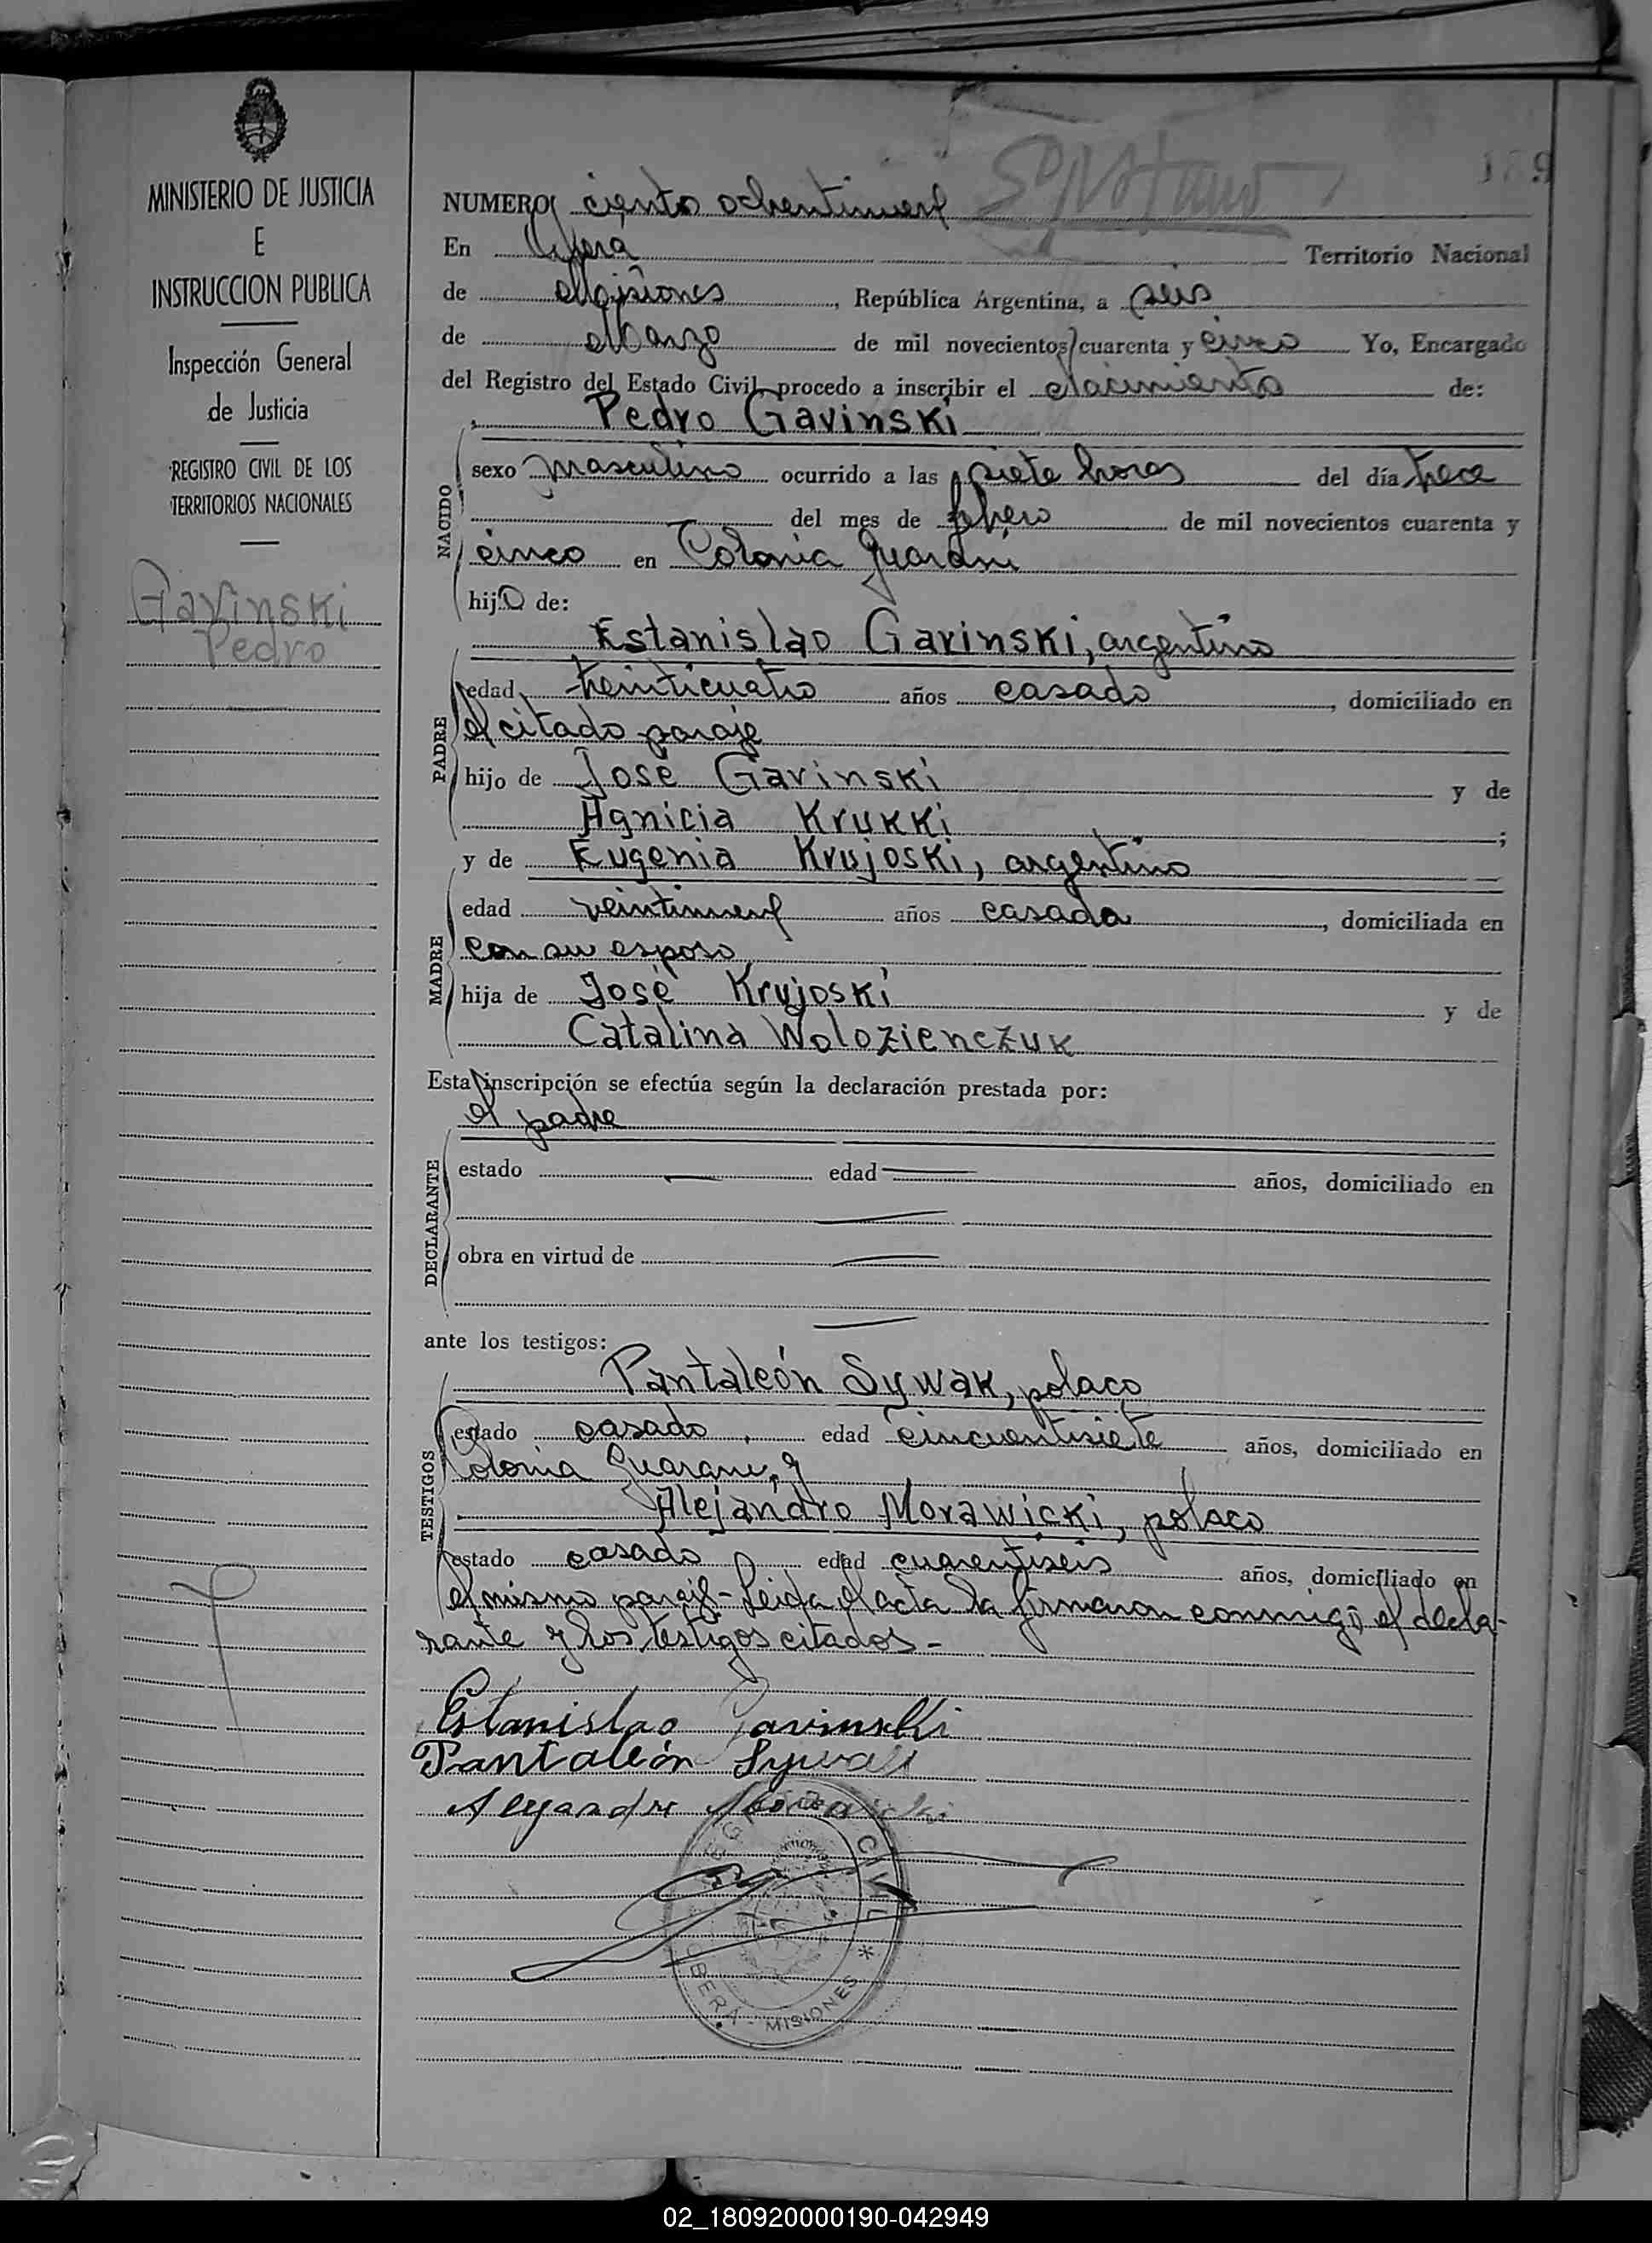 189
MINISTERIO DE JUSTICIA
E
INSTRUCCION PUBLICA
Inspección General
de Justicia
REGISTRO CIVIL DE LOS
TERRITORIOS NACIONALES
Gavinski
Pedro
NUMERO ciento ochentinueve
En Oberá Territorio Nacional
de Misiones, República Argentina, a seis
de Marzo de mil novecientos cuarenta y cinco Yo, Encargado
del Registro del Estado Civil, procedo a inscribir el Nacimiento de:
Pedro Gavinski
NACIDO
sexo masculino ocurrido a las siete horas del día trece
del mes de febrero de mil novecientos cuarenta y
cinco en Colonia Guaraní
hijo de:
Estanislao Gavinski, argentino
PADRE
edad treinticuatro años casado, domiciliado en
el citado paraje
hijo de José Gavinski y de
Agnicia Krukki;
y de Eugenia Krujoski, argentina
MADRE
edad veintinueve años casada, domiciliada en
con su esposo
hija de José Krujoski y de
Catalina Wolozienczuk
Esta inscripción se efectúa según la declaración prestada por:
el padre
DECLARANTE
estado edad años, domiciliado en
obra en virtud de
ante los testigos:
Pantaleón Sywak, polaco
TESTIGOS
estado casado, edad cincuentisiete años, domiciliado en
Colonia Guaraní, y
Alejandro Morawicki, polaco
estado casado edad cuarentiseis años, domiciliado en
el mismo paraje - Leida el acta la firmaron conmigo el decla-
rante y los testigos citados.-
Estanislao Gavinski
Pantaleón Sywak
Alejandro Morawicki
REGISTRO CIVIL
OBERÁ - MISIONES *
02_180920000190-042949